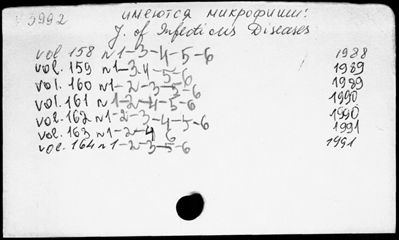 3992
имеются микрофиши:
J. of Infectious Diseases
vol 158 N1-3-4-5-6 1988
vol. 159 N1-3-4-5-6 1989
vol. 160 N1-2-3-5-6 1989
vol. 161 N1-2-4-5-6 1990
vol. 162 N1-2-3-4-5-6 1990
vol. 163 N1-2-4 6 1991
vol. 164 N1-2-3-5-6 1991